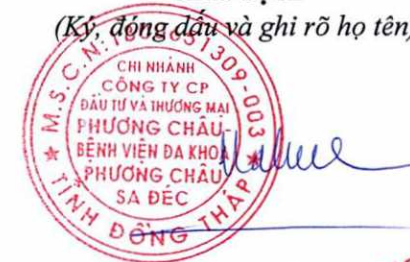 (Ký, đóng dấu và ghi rõ họ tên)
M.S.C.N:
1309-003
CHI NHÁNH
CÔNG TY CP
ĐẦU TƯ VÀ THƯƠNG MẠI
PHƯƠNG CHÂU
BỆNH VIỆN ĐA KHOA
PHƯƠNG CHÂU
SA ĐÉC
TỈNH ĐỒNG THÁP